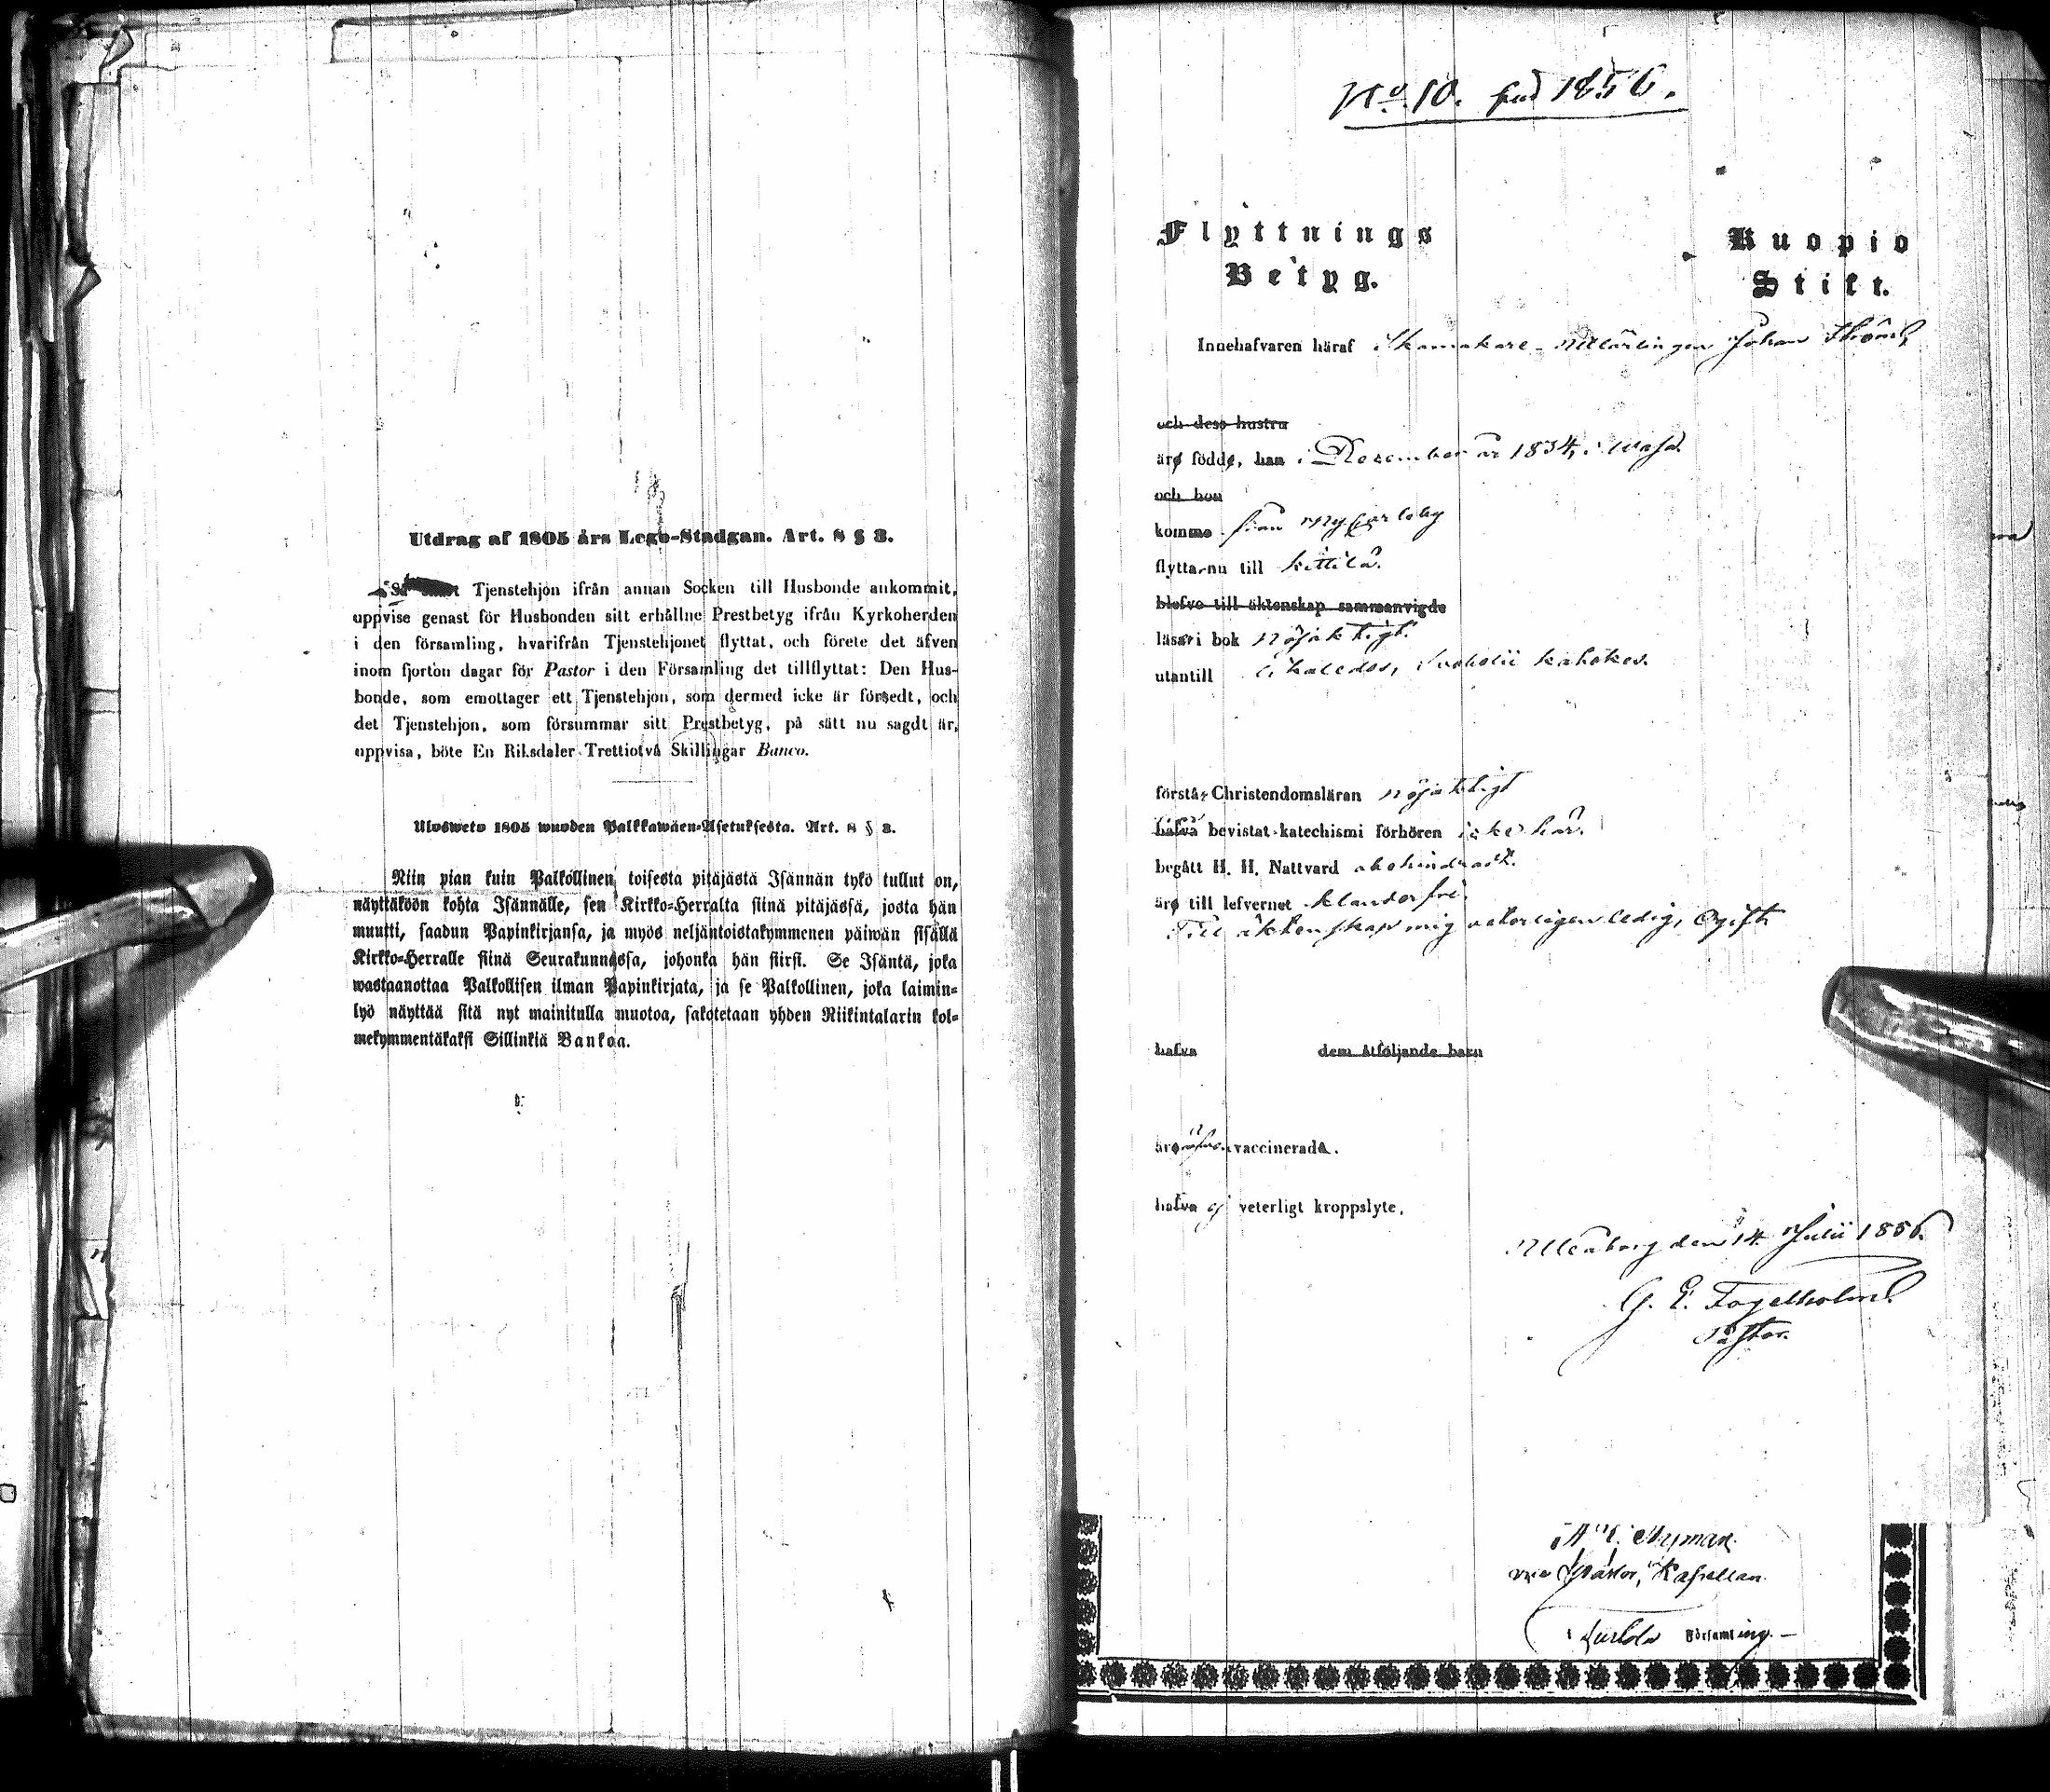 Utdrag af 1805 års Lego-Stadgan. Art. 8 § 3.
Så Tjenstehjon ifrån annan Socken till Husbonde ankommit,
uppvise genast för Husbonden sitt erhållne Prestbetyg ifrån Kyrkoherden
i den församling, hvarifrån Tjenstehjonet flyttat, och förete det äfven
inom fjorton dagar för Pastor i den Församling det tillflyttat: Den Hus-
bonde, som emottager ett Tjenstehjon, som dermed icke är försedt, och
det Tjenstehjon, som försummar sitt Prestbetyg, på sätt nu sagdt är,
uppvisa, böte En Riksdaler Trettiotvå Skillingar Banco.
Ulosweto 1805 wuoden Palkkawäen-Asetuksesta. Art. 8 § 3.
Niin pian kuin Palkollinen toisesta pitäjästä Isännän tykö tullut on,
näyttäköön kohta Isännälle, sen Kirkko-Herralta siinä pitäjässä, josta hän
muutti, saadun Papinkirjansa, ja myös neljäntoistakymmenen päiwän sisällä
Kirkko-Herralle siinä Seurakunnassa, johonka hän siirsi. Se Isäntä, joka
wastaanottaa Palkollisen ilman Papinkirjata, ja se Palkollinen, joka laimin-
lyö näyttää sitä nyt mainitulla muotoa, sakotetaan yhden Riikintalarin kol-
mekymmentäkaksi Sillinkiä Bankoa.
No. 10. 1856.
Flyttnings Kuopio
Betyg. Stift.
Innehafvaren häraf Skomakare-Mästar Johan
och dess hustru
äro födde, han i December år 1834, i Wasa
och hon
komme från Nycarleby
flytta nu till Kittilä.
blefvo till äktenskap sammanvigde
läsa i bok nöjaktigt.
utantill
förstå Christendomsläran nöjaktigt
hafva bevistat katechismi förhören icke här.
begått H. H. Nattvard obehindradt.
äro till lefvernet klanderfri.
Till äktenskap mig veterligen ledig, Ogift
hafva dem åtföljande barn
äro vaccinerade.
hafva ej veterligt kroppslyte.
Uleåborg den 14 Julii 1856.
G. E. Fogelholm.
Pastor.
Nyman
vice Pastor, Kapellan
i Församling.